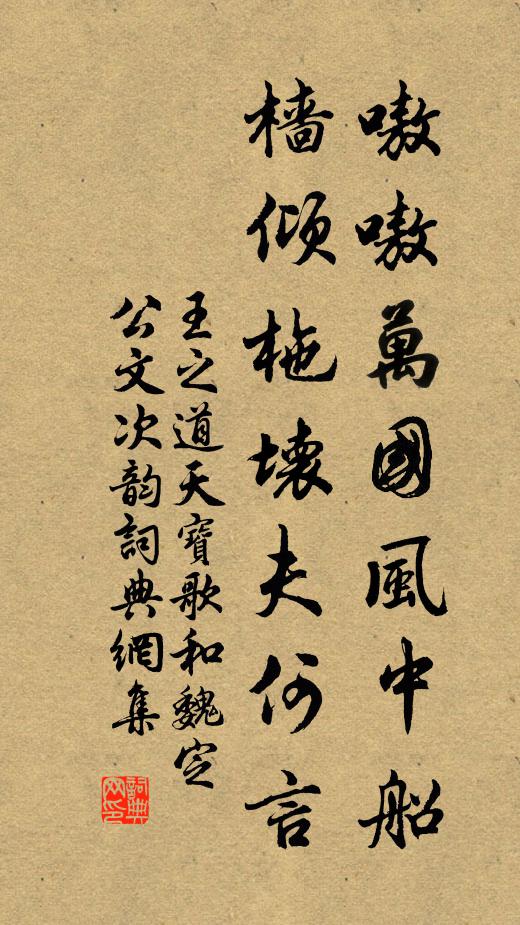 嗷嗷萬國風中船
檣傾柂壞夫何言
王之道天寶歌和魏定
公文次韵詞典網集
詞典
网印